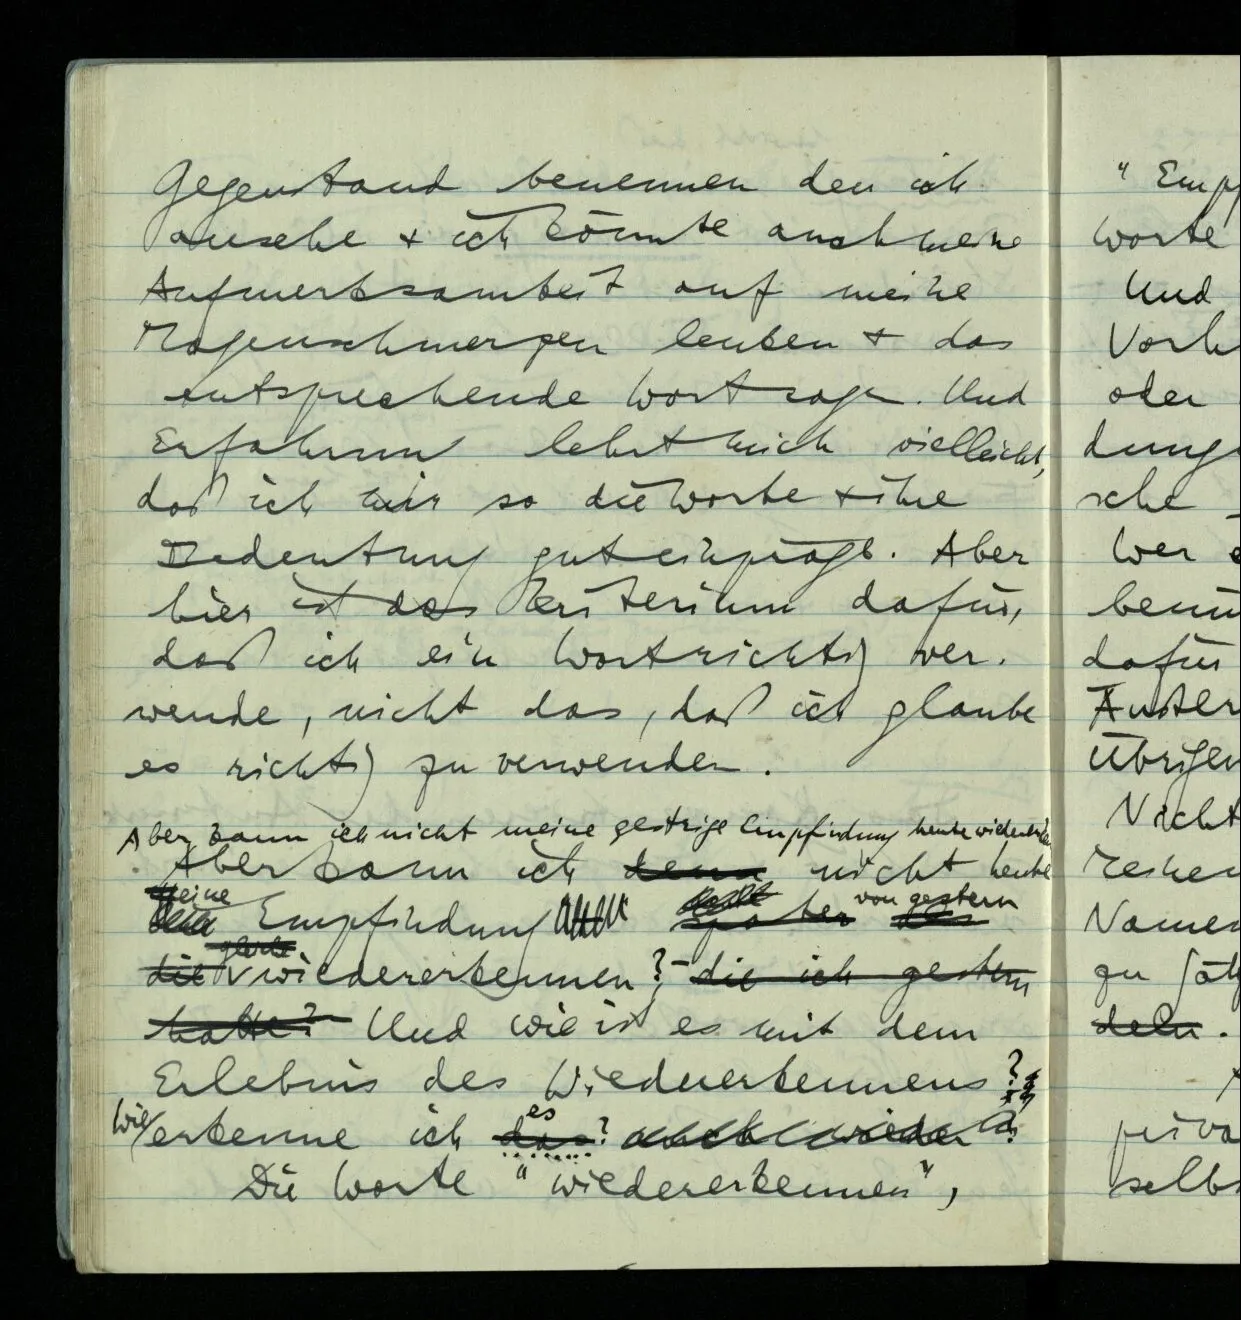 Gegenstand benennen den ich
ansehe & ich könnte auch meine
Aufmerksamkeit auf meine
Magenschmerzen lenken & das
entsprechende Wort sagen. Und
Erfahrung lehrt mich vielleicht,
daß ich mir so die Worte & ihre
Bedeutung gut einpräge. Aber
hier ist das Kriterium dafür,
daß ich ein Wort richtig ver-
wende, nicht das, daß ich glaube
es richtig zu verwenden.
Aber kann ich nicht meine gestrige Empfindung heute wiederer
Aber kann ich denn nicht heute
meine
Empfindung später von gestern
die wiedererkennen? – die ich gestern
hatte? Und wie ist es mit dem
Erlebnis des Wiedererkennens?
Wie erkenne ich das es? auch wieder
Die Worte "wiedererkennen",
"Empf
Worte
Und
Vorh
oder
dunge
sche
Wer
benü
dafür
Äußer
Übrigen
Nicht
Namen
zu
deln.
priva
selbs